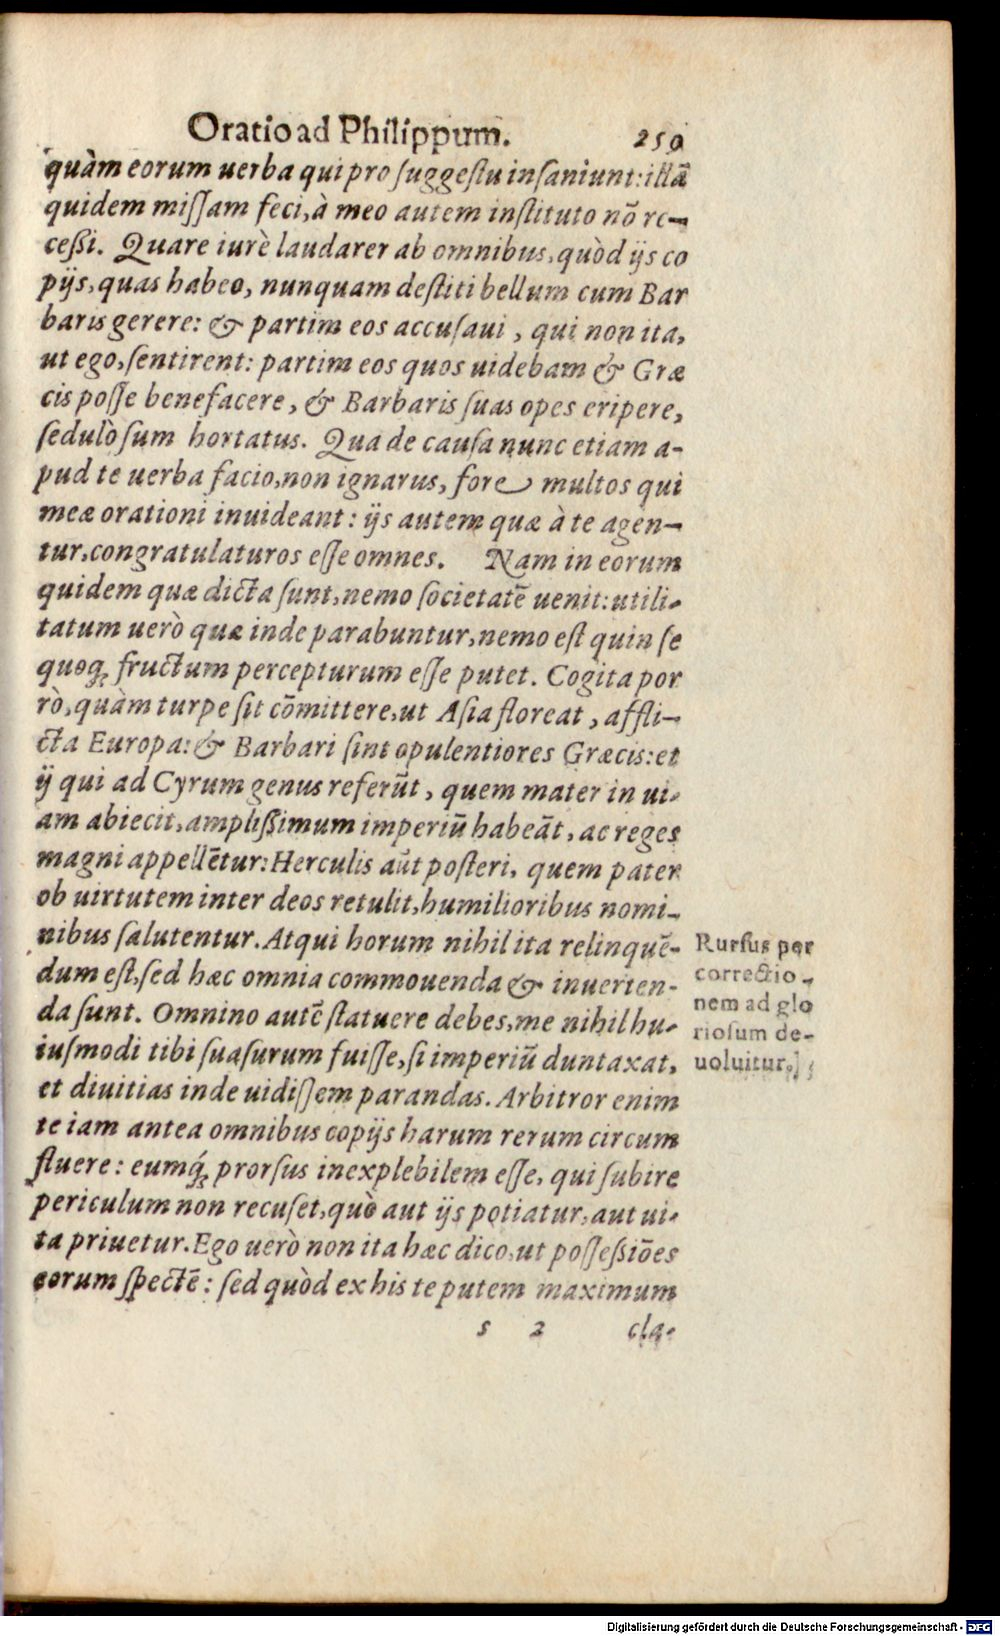 Oratio ad Philippum. 259
quàm eorum uerba qui pro ſuggeſtu inſaniunt: illā
quidem miſſam feci, à meo autem inſtituto nō re-
ceßi. Quare iurè laudarer ab omnibus, quòd ijs co
pijs, quas habeo, nunquam deſtiti bellum cum Bar
baris gerere: & partim eos accuſaui, qui non ita,
ut ego, ſentirent: partim eos quos uidebam & Græ
cis poſſe benefacere, & Barbaris ſuas opes eripere,
ſedulò ſum hortatus. Qua de cauſa nunc etiam a-
pud te uerba facio, non ignarus, fore multos qui
meæ orationi inuideant: ijs autem quæ à te agen-
tur, congratulaturos eſſe omnes. Nam in eorum
quidem quæ dicta ſunt, nemo ſocietatē uenit: utili-
tatum uerò quæ inde parabuntur, nemo eſt quin ſe
quoq; fructum percepturum eſſe putet. Cogita por
rò, quàm turpe ſit cōmittere, ut Aſia floreat, affli-
cta Europa: & Barbari ſint opulentiores Græcis: et
ij qui ad Cyrum genus referūt, quem mater in ui-
am abiecit, amplißimum imperiū habeāt, ac reges
magni appellētur: Herculis aūt poſteri, quem pater
ob uirtutem inter deos retulit, humilioribus nomi-
nibus ſalutentur. Atqui horum nihil ita relinquē-
dum eſt, ſed hæc omnia commouenda & inuerten-
da ſunt. Omnino autē ſtatuere debes, me nihil hu-
iuſmodi tibi ſuaſurum fuiſſe, ſi imperiū duntaxat,
et diuitias inde uidiſſem parandas. Arbitror enim
te iam antea omnibus copijs harum rerum circum
fluere: eumq́; prorſus inexplebilem eſſe, qui ſubire
periculum non recuſet, quò aut ijs potiatur, aut ui-
ta priuetur. Ego uerò non ita hæc dico, ut poſſeßiōes
eorum ſpectē: ſed quòd ex his te putem maximum
s 2 cla-
Rurſus per
correctio-
nem ad glo
rioſum de-
uoluitur.]
Digitalisierung gefördert durch die Deutsche Forschungsgemeinschaft - DFG